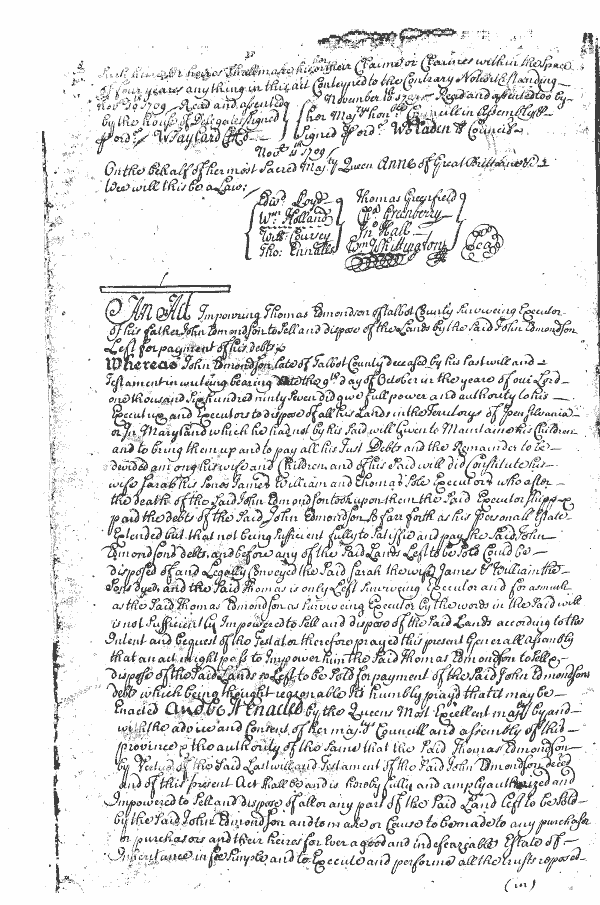 such his or her heires shall make his or their Claime or Claimes within the space
of four yeares anything in this act Conteyned to the Contrary Notwithstanding
Novr 1709 Read and assented
by the house of Delegates signed
p ordr W Taylard
November 1709 Read and assented to by
her Majtys honble Councill in Assembly
signed p ordr W Bladen Councill
Novr 11th 1709
On the behalf of her most Sacred Majty Queen Anne of Great Brittaine &c
Wee will this be a Law:
Edwd Loyd
Wm Holland
Willm Coursey
Tho: Ennalls
Thomas Greenfield
Cha Granberry
Jno Hall
Seal
An Act Impowring Thomas Edmondson of Talbot County surviveing Executor
of his father John Edmondson to sell and dispose of the Lands by the said John Edmondson
Left for payment of his debts
Whereas John Edmondson late of Talbot County deceased by his last will and
Testament in writeing bearing date the 9th day of October in the yeare of our Lord
one thousand six hundred ninty seven did give full power and authority to his
Executrix and Executors to dispose of all his Lands in the Territorys of Pensilvania
or In Maryland which he had not by his said will Given to Maintaine his Children
and to bring them up and to pay all his Just Debts and the Remainder to be
devided among his wife and Children and of his said will did Constitute his
wife Sarah his sons James William and Thomas Sole Executors who after
the death of the said John Edmondson took upon them the said Executorshipp &
paid the debts of the said John Edmondson so farr forth as his personall Estate
Extended but that not being sufficient fully to satisfie and pay the said John
Edmondsons debts and before any of the said Lands Left to be sold Could be
disposed of and Legally Conveyed the said Sarah the wife James & William the
sons dyed and the said Thomas is only Left surviveing Executor and for as much
as the said Thomas Edmondson as surviveing Executor by the words in the said will
is not sufficiently Impowered to sell and dispose of the said Lands according to the
Intent and bequest of the Testator therefore prayed this present Generall assembly
that an act might pass to Impower him the said Thomas Edmondson to sell &
dispose of the said Lands so Left to be sold for payment of the said John Edmondsons
debts which being thought reasonable Itt humbly prayd that it may be
Enacted And be it Enacted by the Queens Most Excellent majty by and
with the advice and Consent of her majtys Councill and assembly of this
province & the authority of the same that the said Thomas Edmondson
by Vertue of the said Last will and Testament of the said John Edmondson deced
and of this present Act shall be and is hereby fully and amply authorized and
Impowered to sell and dispose of all or any part of the said Land left to be sold
by the said John Edmondson and to make or Cause to be made to any purchaser
or purchasors and their heires for Ever a good and indefeazable Estate of
Inheritance in fee simple and to Execute and performe all the trusts reposed
(in)